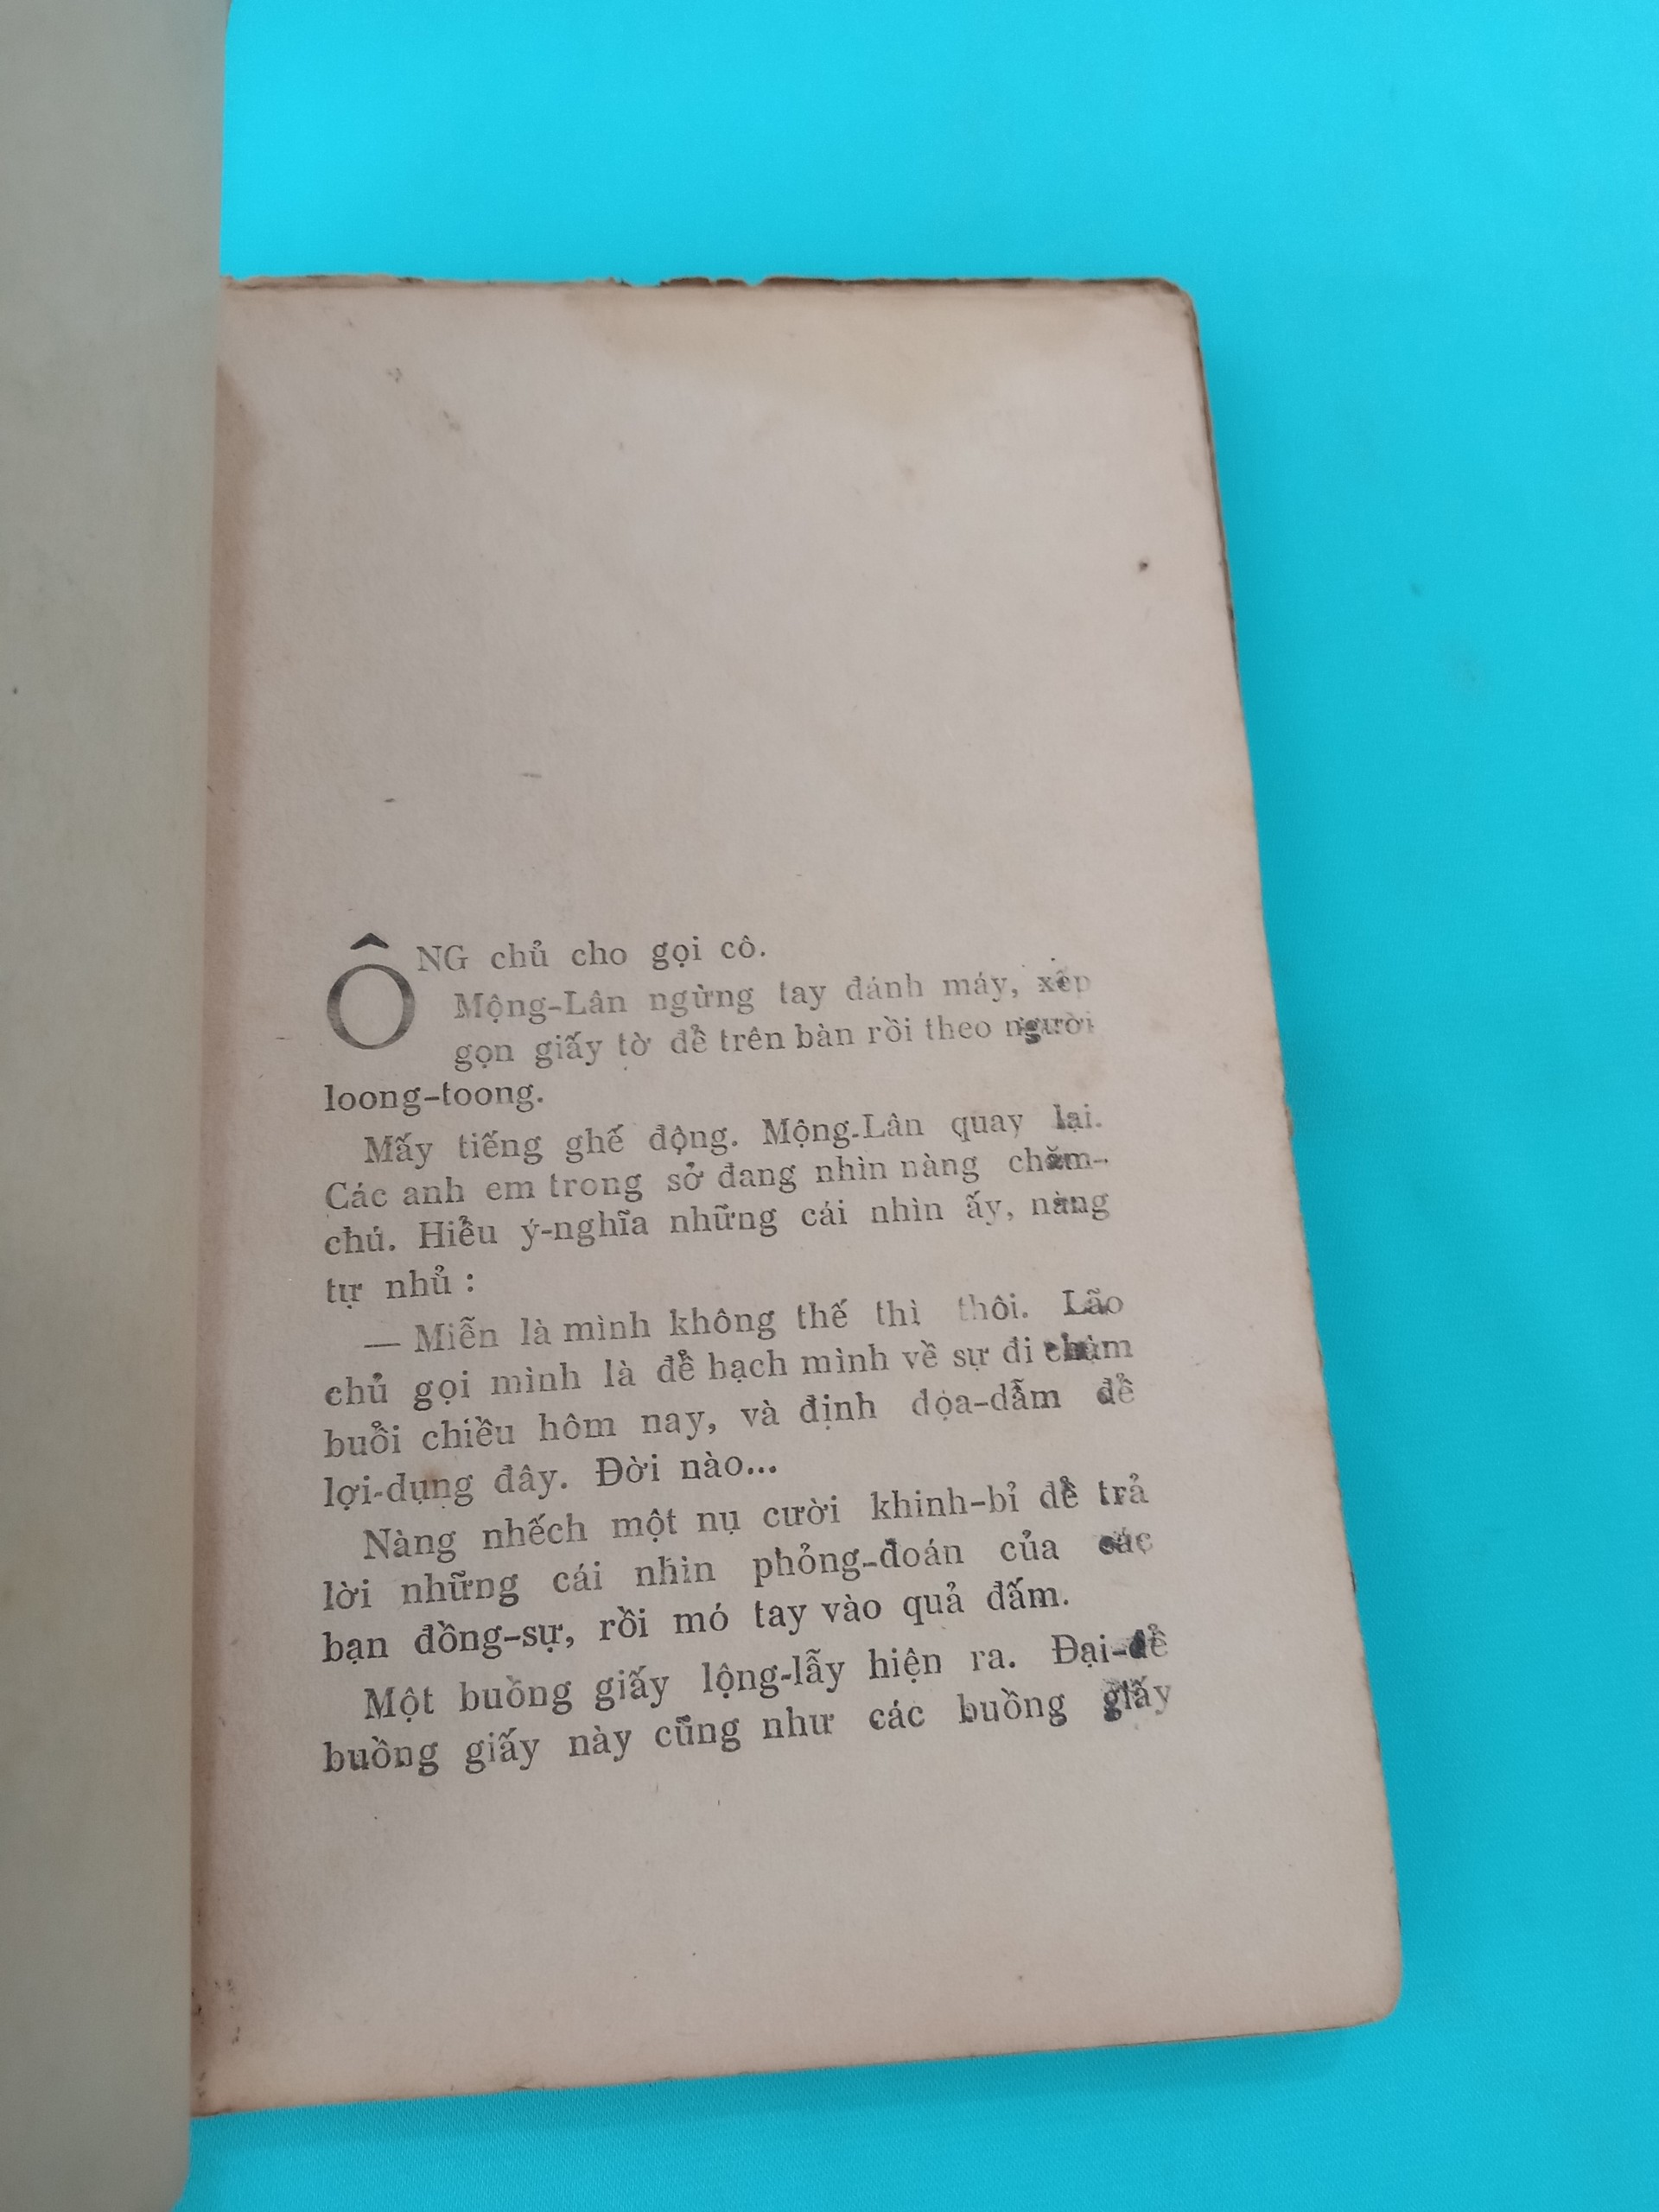 ÔNG chủ cho gọi cô.
Mộng-Lân ngừng tay đánh máy, xếp
gọn giấy tờ để trên bàn rồi theo người
loong-toong.
Mấy tiếng ghế động. Mộng-Lân quay lại.
Các anh em trong sở đang nhìn nàng chăm-
chú. Hiểu ý-nghĩa những cái nhìn ấy, nàng
tự nhủ :
— Miễn là mình không thế thì thôi. Lão
chủ gọi mình là để hạch mình về sự đi chậm
buổi chiều hôm nay, và định dọa-dẫm để
lợi-dụng đây. Đời nào...
Nàng nhếch một nụ cười khinh-bỉ để trả
lời những cái nhìn phỏng-đoán của các
bạn đồng-sự, rồi mó tay vào quả đấm.
Một buồng giấy lộng-lẫy hiện ra. Đại-để
buồng giấy này cũng như các buồng giấy